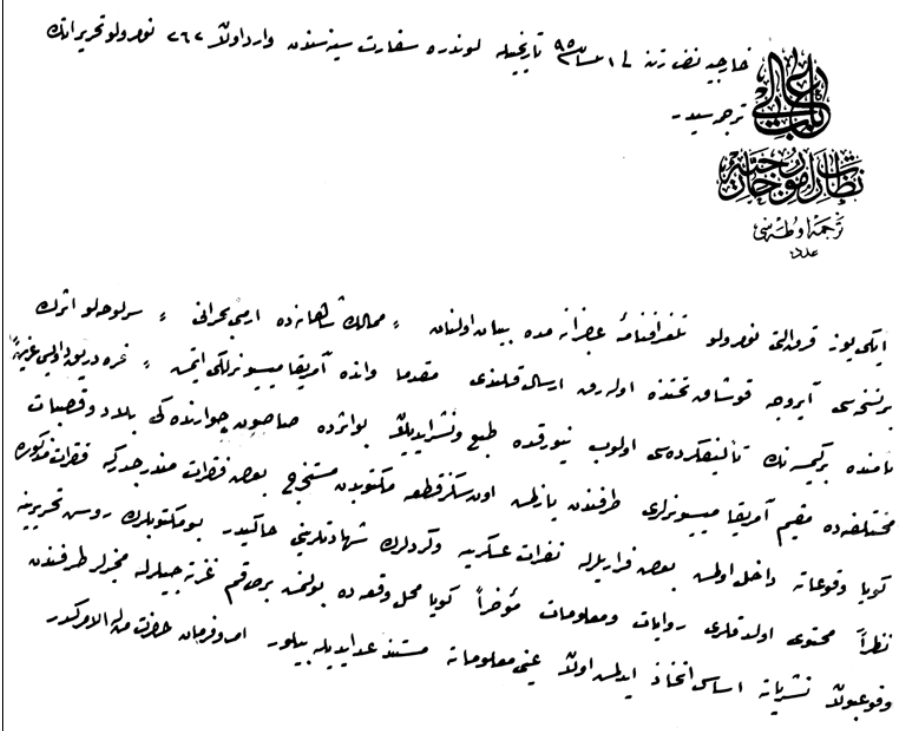 باب عالی
نظارت امور خارجیه
ترجمه اوطه سی
عدد
خارجیه نظارتنه فی ١ مارت ٩٥ تاریخیله لوندره سفارت سنیه سندن وارد اولان ٢٦٢ نومرولو تحریراتك
ترجمه سیدر
ایکی یوز قرق التی نومرولو تلغرافنامهٔ عاجزانه مده بیان اولنان « ممالك شاهانه ده ارمنی بحرانی » سرلوحه لو اثرك
برنسخه سی آیروجه قوشاق تحتنده اوله رق ارسال قلندی مقدما وانده آمریقا میسیونرلکی ایتمش « غره درین
نامنده برکیمسه نك تألیفکرده سی اولوب نیورقده طبع ونشر ایدیلان بواثرده صاصون جوارنده کی بلاد وقصبات
مختلفه ده مقیم آمریقا میسیونرلری طرفندن یازلمش اون سکز قطعه مکتوبدن مستخرج بعض فقرات مندرجدرکه فقرات مذکوره
کویا وقوعاته داخل اولمش بعض فراریلرله نفرات عسکریه وکردلرك شهادتلرینی حاکیدر بومکتوبلرك روش تحریرینه
نظراً محتوی اولدقلری روایات ومعلومات مؤخراً کویا محل وقعه ده بولنمش برطاقم غزته جیلرله مخبرلر طرفندن
وقوعبولان نشریاته اساس اتخاذ ایدلمش اولان عینی معلوماته مستند عد ایدیله بیلور امر وفرمان حضرت من له الامرکدر